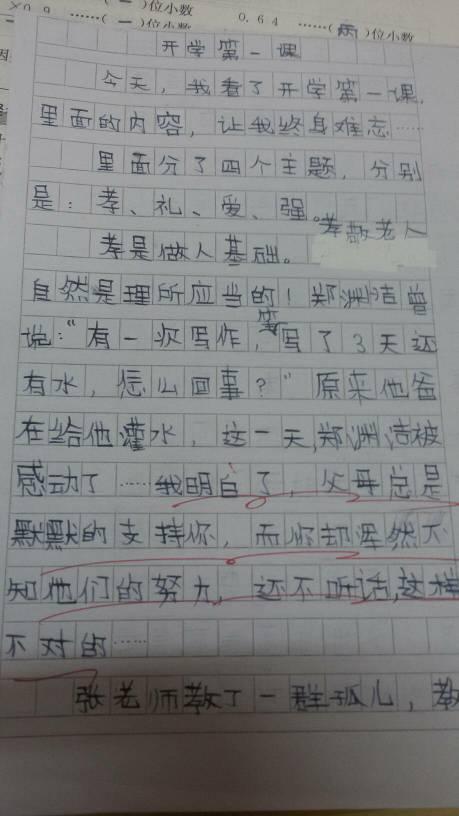 ×0.9 ……(一)位小数
0.64 ……(两)位小数
开学第一课
今天，我看了开学第一课，
里面的内容，让我终身难忘……
里面分了四个主题，分别
是：孝、礼、爱、强。
孝是做人基础。孝敬老人
自然是理所应当的！郑渊洁曾
说：“有一次写作，笔写了3天还
有水，怎么回事？”原来他爸
在给他灌水，这一天，郑渊洁被
感动了……我明白了，父母总是
默默的支持你，而你却浑然不
知他们的努力，还不听话，这样
不对的……
张老师教了一群孤儿，教